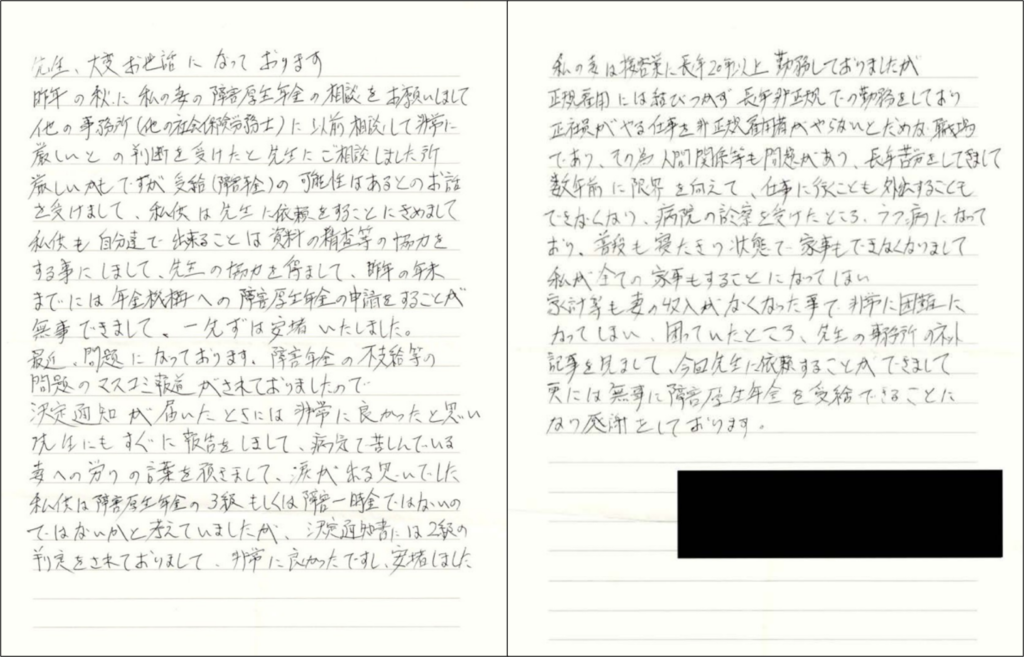 先生、大変お世話になっております
昨年の秋に私の妻の障害厚生年金の相談をお願いしまして
他の事務所(他の社会保険労務士)に以前相談して非常に
厳しいとの判断を受けたと先生にご相談しました所
厳しいかもですが受給(障害年金)の可能性はあるとのお話
を受けまして、私供は先生に依頼をすることにきめまして
私供も自分達で出来ることは資料の精査等の協力を
する事にしまして、先生の協力を得まして、昨年の年末
までには年金機構への障害厚生年金の申請をすることが
無事できまして、一先ずは安堵いたしました。
最近、問題になっております、障害年金の不支給等の
問題のマスコミ報道がされておりましたので
決定通知が届いたときには非常に良かったと思い
先生にもすぐに報告をしまして、病気で苦しんでいる
妻への労りの言葉を頂きまして、涙が出る思いでした
私供は障害厚生年金の3級もしくは障害一時金ではないの
ではないかと考えていましたが、決定通知書には2級の
判定をされておりまして、非常に良かったですし、安堵しました
私の妻は接客業に長年20年以上勤務しておりましたが
正規雇用には結びつかず長年非正規での勤務をしており
正社員がやる仕事を非正規雇用者がやらないとだめな職場
であり、その為人間関係等も問題があり、長年苦労をしてきまして
数年前に限界を向えて、仕事に行くことも外出することも
できなくなり、病院の診察を受けたところ、うつ病になって
おり、普段も寝たきり状態で家事もできなくなりまして
私が全ての家事もすることになってしまい
家計等も妻の収入がなくなった事で非常に困難に
なってしまい、困っていたところ、先生の事務所のネット
記事を見まして、今回先生に依頼することができまして
更には無事に障害厚生年金を受給できることに
なり感謝をしております。